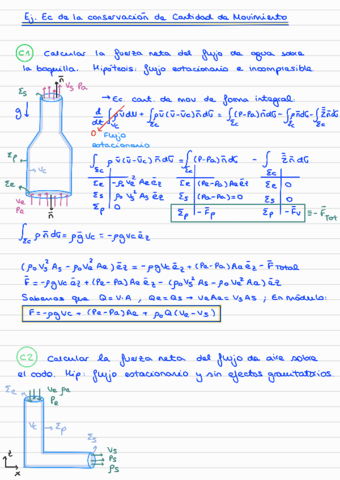 Ej. Ec de la conservación de Cantidad de Movimiento
C1 Calcular la fuerza neta del flujo de agua sobre
la boquilla. Hipótesis: flujo estacionario e incompresible
n̄
Vs Pa
Σs
g
→ Ec cant. de mov de forma integral
d/dt ∫Vc ρv̄dV + ∫Σc ρv̄(v̄-v̄c)n̄dσ = ∫Σc (P-Pa)n̄dσ - ∫Σc ρn̄dσ - ∫Σc τ̄n̄dσ
0 Flujo
estacionario
Σp
Vc
Σe
Ve
Pe
n̄
∫Σc ρv̄(v̄-v̄c)n̄dσ = ∫Σc (P-Pa)n̄dσ - ∫Σc τ̄n̄dσ
Σe | -ρ₀Ve²Aeēz
Σs | ρ₀Vs²Asēz
Σp | 0
Σe | (Pe-Pa)Aeēz
Σs | (Pa-Pa)=0
Σp | -F̄p
Σe | 0
Σs | 0
Σp | -F̄v
≡ -F̄Tot
∫Σc ρn̄dσ = ρḡVc = -ρgVcēz
(ρ₀Vs²As - ρ₀Ve²Ae)ēz = -ρgVcēz + (Pe-Pa)Aeēz - F̄Total
F̄ = -ρgVcēz + (Pe-Pa)Aeēz - (ρ₀Vs²As - ρ₀Ve²Ae)ēz
Sabemos que Q=V·A , Qe=Qs → VeAe=VsAs ; En módulo:
F=-ρgVc + (Pe-Pa)Ae + ρ₀Q(Ve-Vs)
C2 Calcular la fuerza neta del flujo de aire sobre
el codo. Hip: flujo estacionario y sin efectos gravitatorios.
Σe
Ve ρe
Pe
Vc
Σp
Σs
Vs
Ps
ρs
z
x